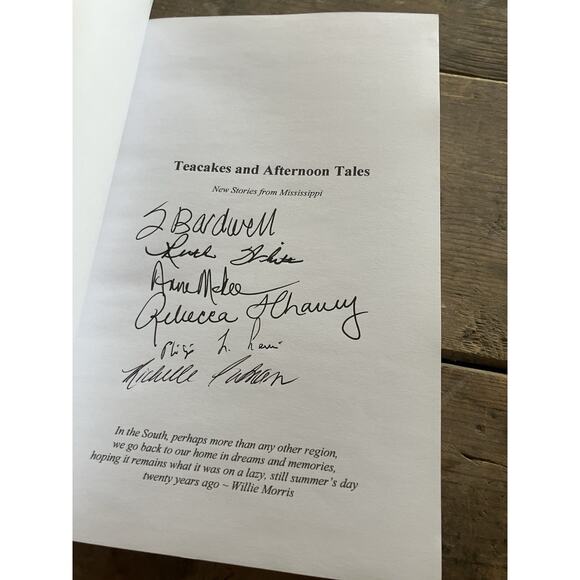 Teacakes and Afternoon Tales
New Stories from Mississippi
J Bardwell
Ruth White
Anne McKee
Rebecca Chaney
Philip L. Levin
Michelle
In the South, perhaps more than any other region,
we go back to our home in dreams and memories,
hoping it remains what it was on a lazy, still summer's day
twenty years ago ~ Willie Morris